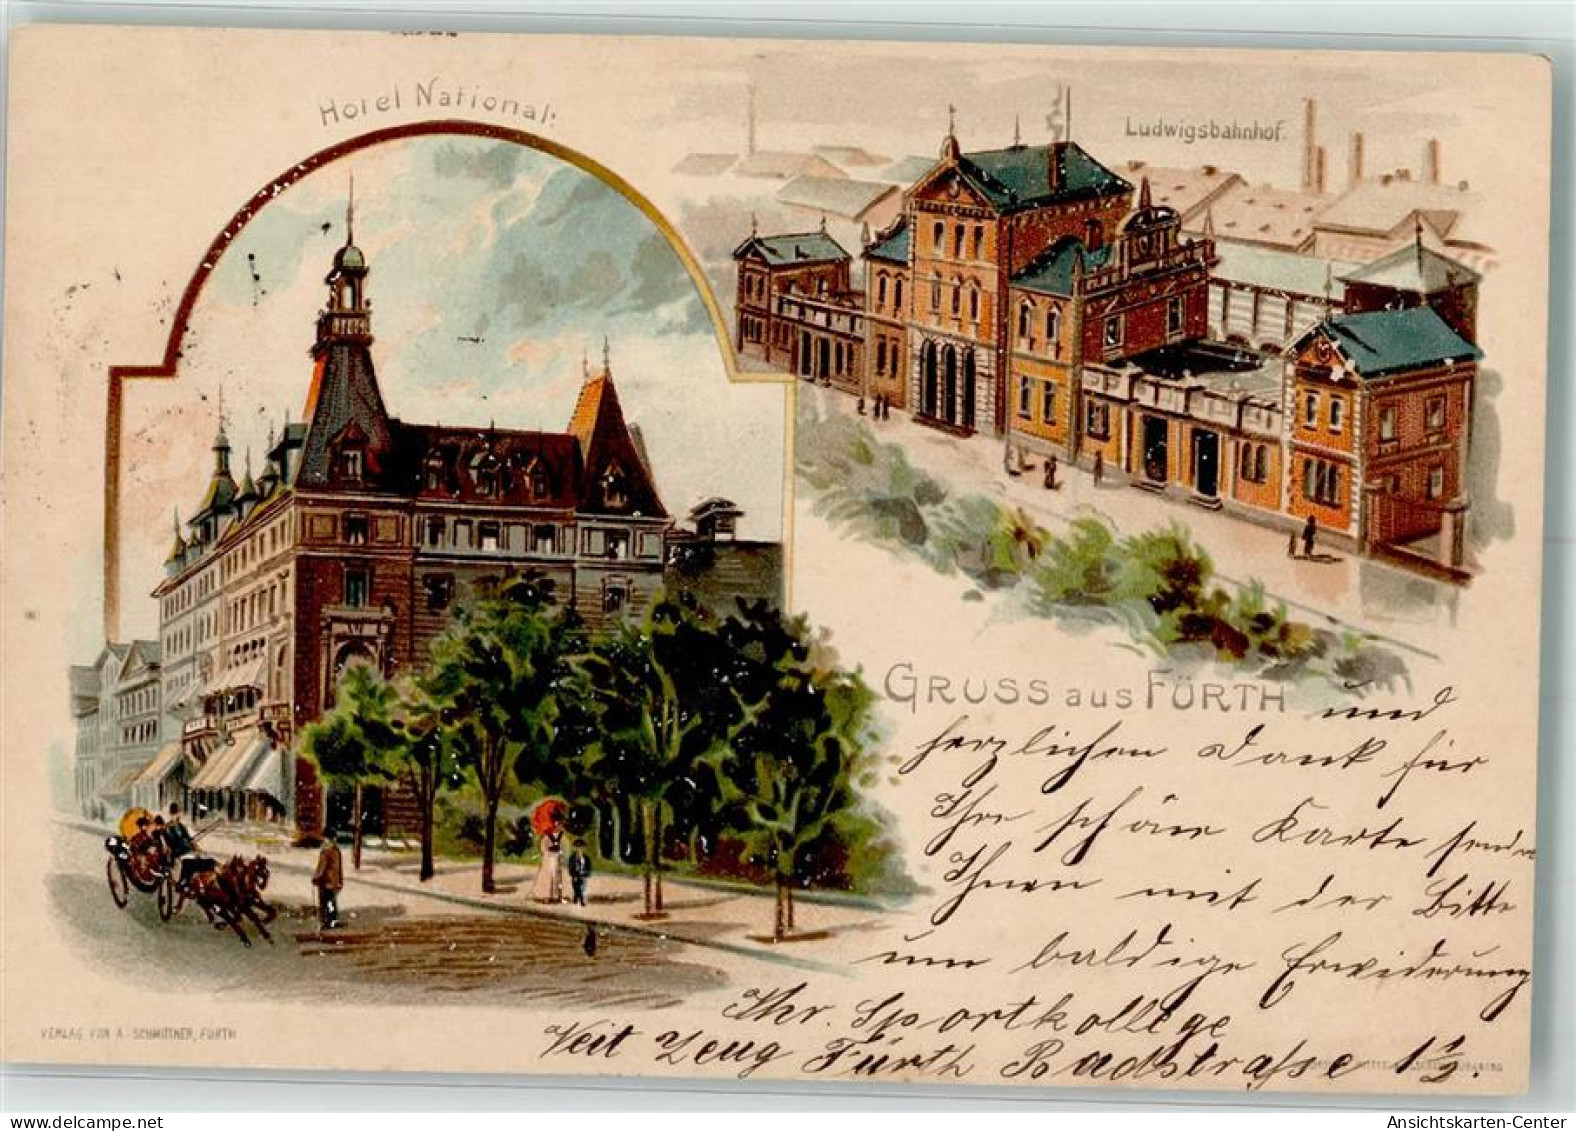 Hotel National:
Ludwigsbahnhof.
GRUSS aus FÜRTH
und
herzlichen Dank für
Ihre schöne Karte sende
Ihnen mit der Bitte
um baldige Erwiderung
Ihr. Sportkollege
Veit Zeug Fürth Badstraße 1½.
VERLAG VON A. SCHMITTNER, FÜRTH
Ansichtskarten-Center